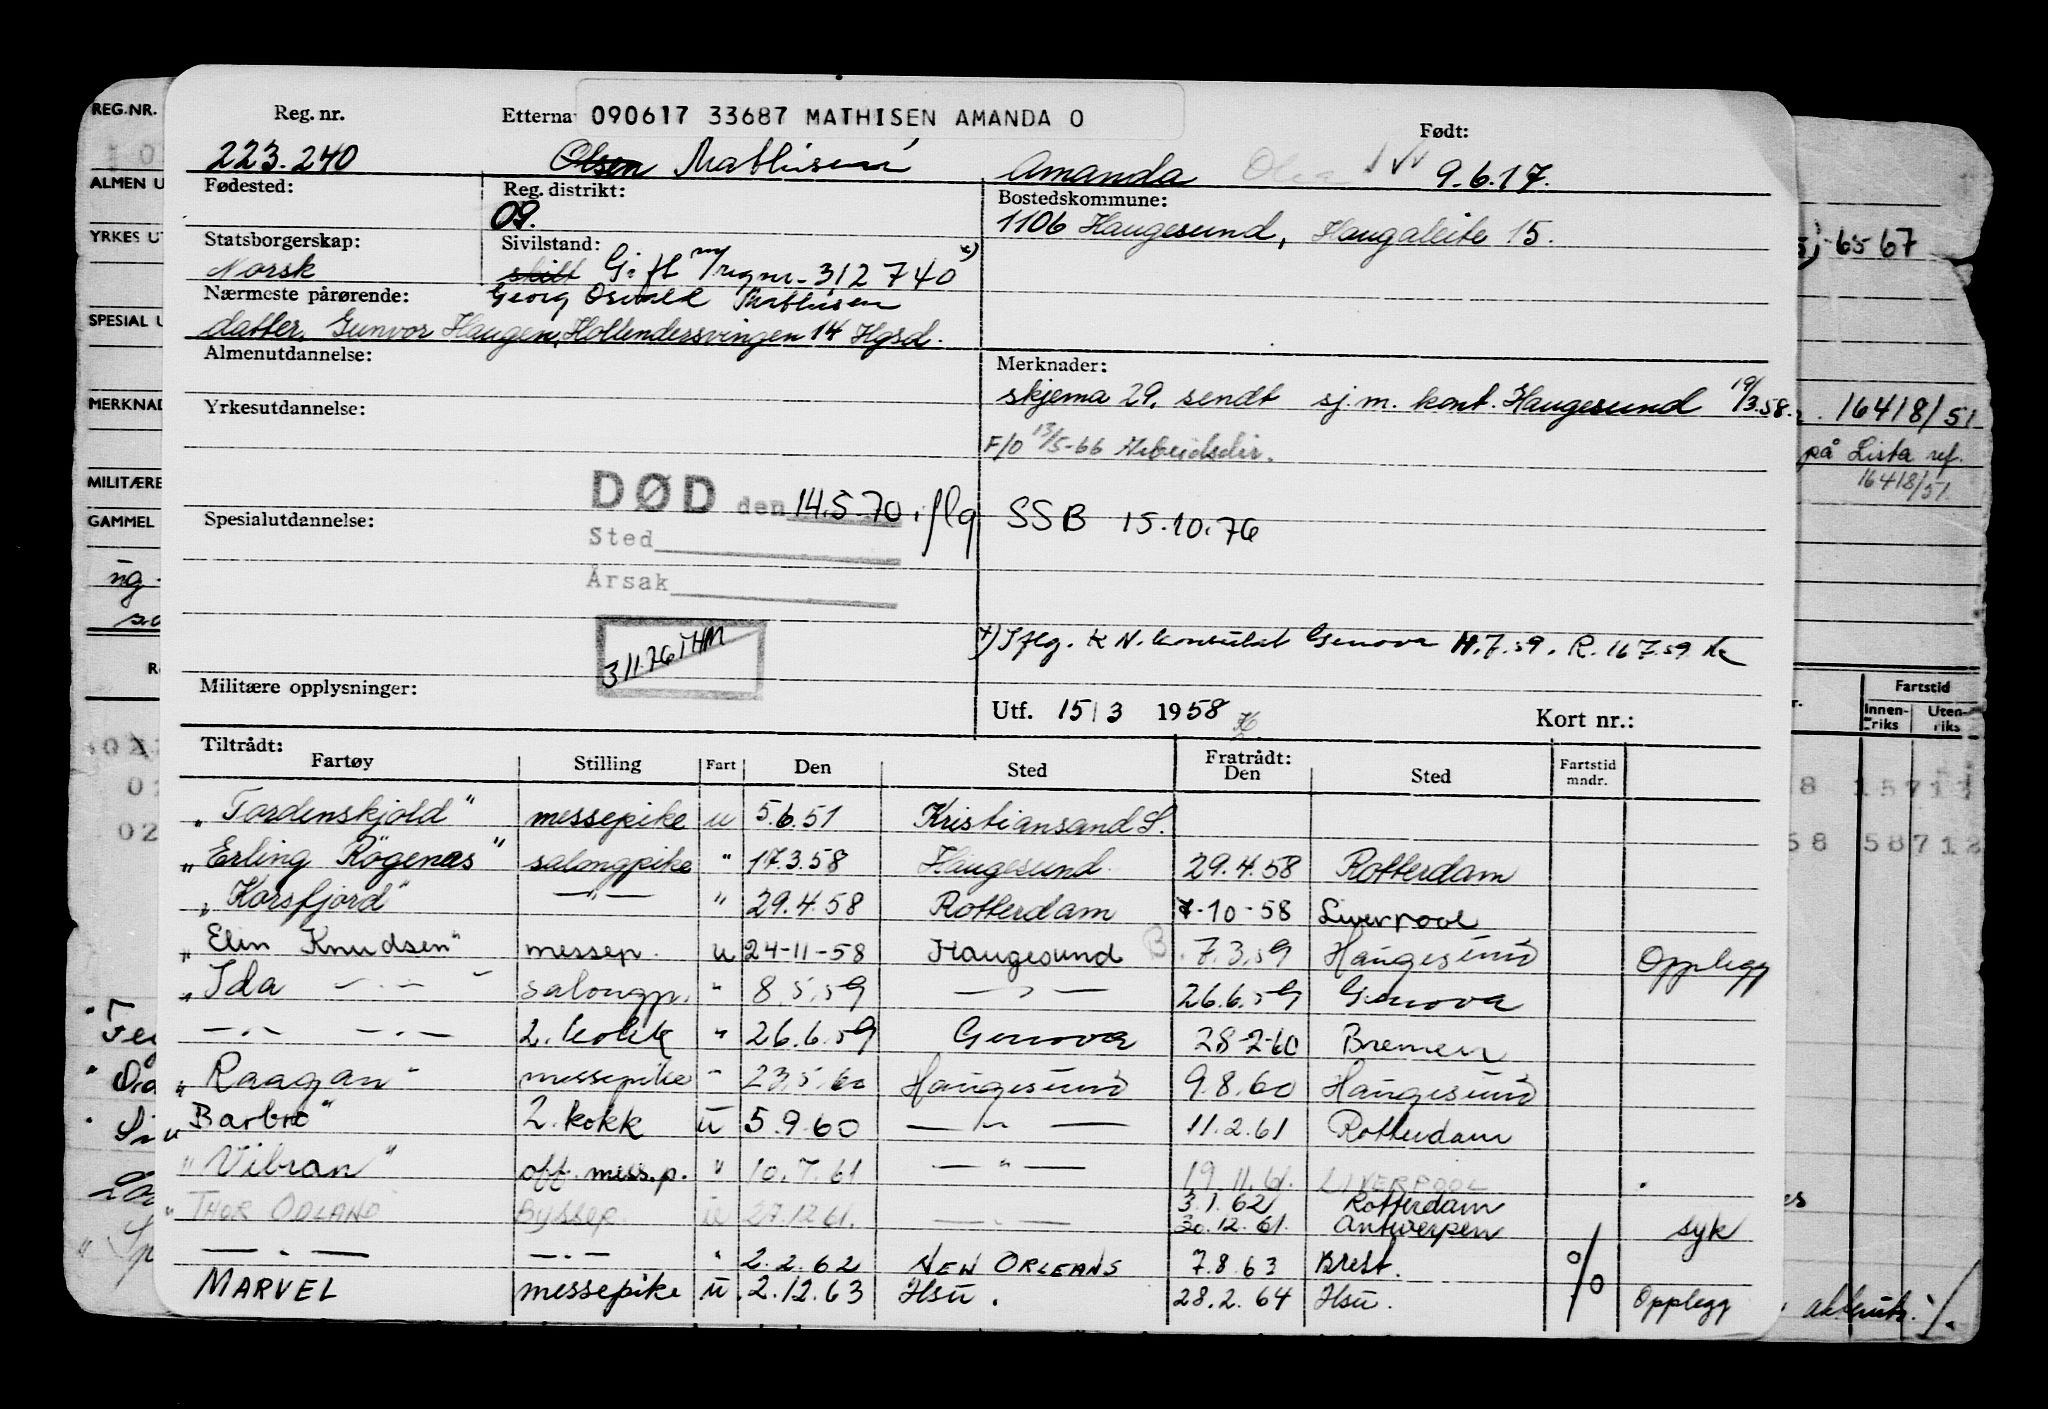 REG.NR.
ALMEN U
YRKES UT
SPECIAL U
MERKNAD
MILITÆRE
GAMMEL
Reg. nr. Etterna 090617 33687 MATHISEN AMANDA O Født:
223.240 Olsen Mathisen Amanda 9.6.17.
Fødested: Reg. distrikt: Bostedskommune:
09. 1106 Haugesund, Haugaleite 15.
Statsborgerskap: Sivilstand:
Norsk skilt Gift m/reg nr. 312740 x)
Nærmeste pårørende: Georg Osvald Mathisen
datter, Gunvor Haugen, Hollendersvingen 14 Hgsd.
Almenutdannelse: Merknader:
skjema 29. sendt sj.m. kont. Haugesund 19/3.58.
Yrkesutdannelse:
F/O 13/5-66 Arbeidsdir.
DØD den 14.5.70 iflg SSB 15.10.76
Spesialutdannelse:
Sted
Årsak
3/11.76 THM
x) Iflg. K N. konsulat Genova M.7.59. R. 16 7.59
Militære opplysninger:
Utf. 15/3 1958 Kort nr.:
Tiltrådt: Fratrådt:
Fartøy Stilling Fart Den Sted Den Sted Fartstid mndr.
"Tordenskjold" messepike u 5.6.51 Kristiansand S.
"Erling Røgenæs" salongpike " 17.3.58 Haugesund 29.4.58 Rotterdam
"Korsfjord" —"— " 29.4.58 Rotterdam 7-10-58 Liverpool
"Elin Knudsen" messep. u 24-11-58 Haugesund 7.3.59 Haugesund Opplegg
"Ida —.— " salongp. " 8.5.59 —"— 26.6.59 Genova
—.— —.— 2. kokk " 26.6.59 Genova 28-2-60 Bremen
"Raagan" messepike " 23.5.60 Haugesund 9.8.60 Haugesund
"Barbro" 2. kokk u 5.9.60 —"— 11.2.61 Rotterdam
"Vibran" off. mess.p. " 10.7.61 —"— 19.11.61. LIVERPOOL
3.1.62 Rotterdam
"THOR ODLAND Byssep. u 27.12.61. —.— 30.12.61. Antwerpen syk
—.— —.— " 2.2.62 NEW ORLEANS 7.8.63 Brest.
MARVEL messepike u. 2.12.63 Hsu. 28.2.64 Hsu. % Opplegg
-65 67
16418/51
på Lista ref.
16418/51
Fartstid
Innen-riks Uten-riks
8 1571
58 58712